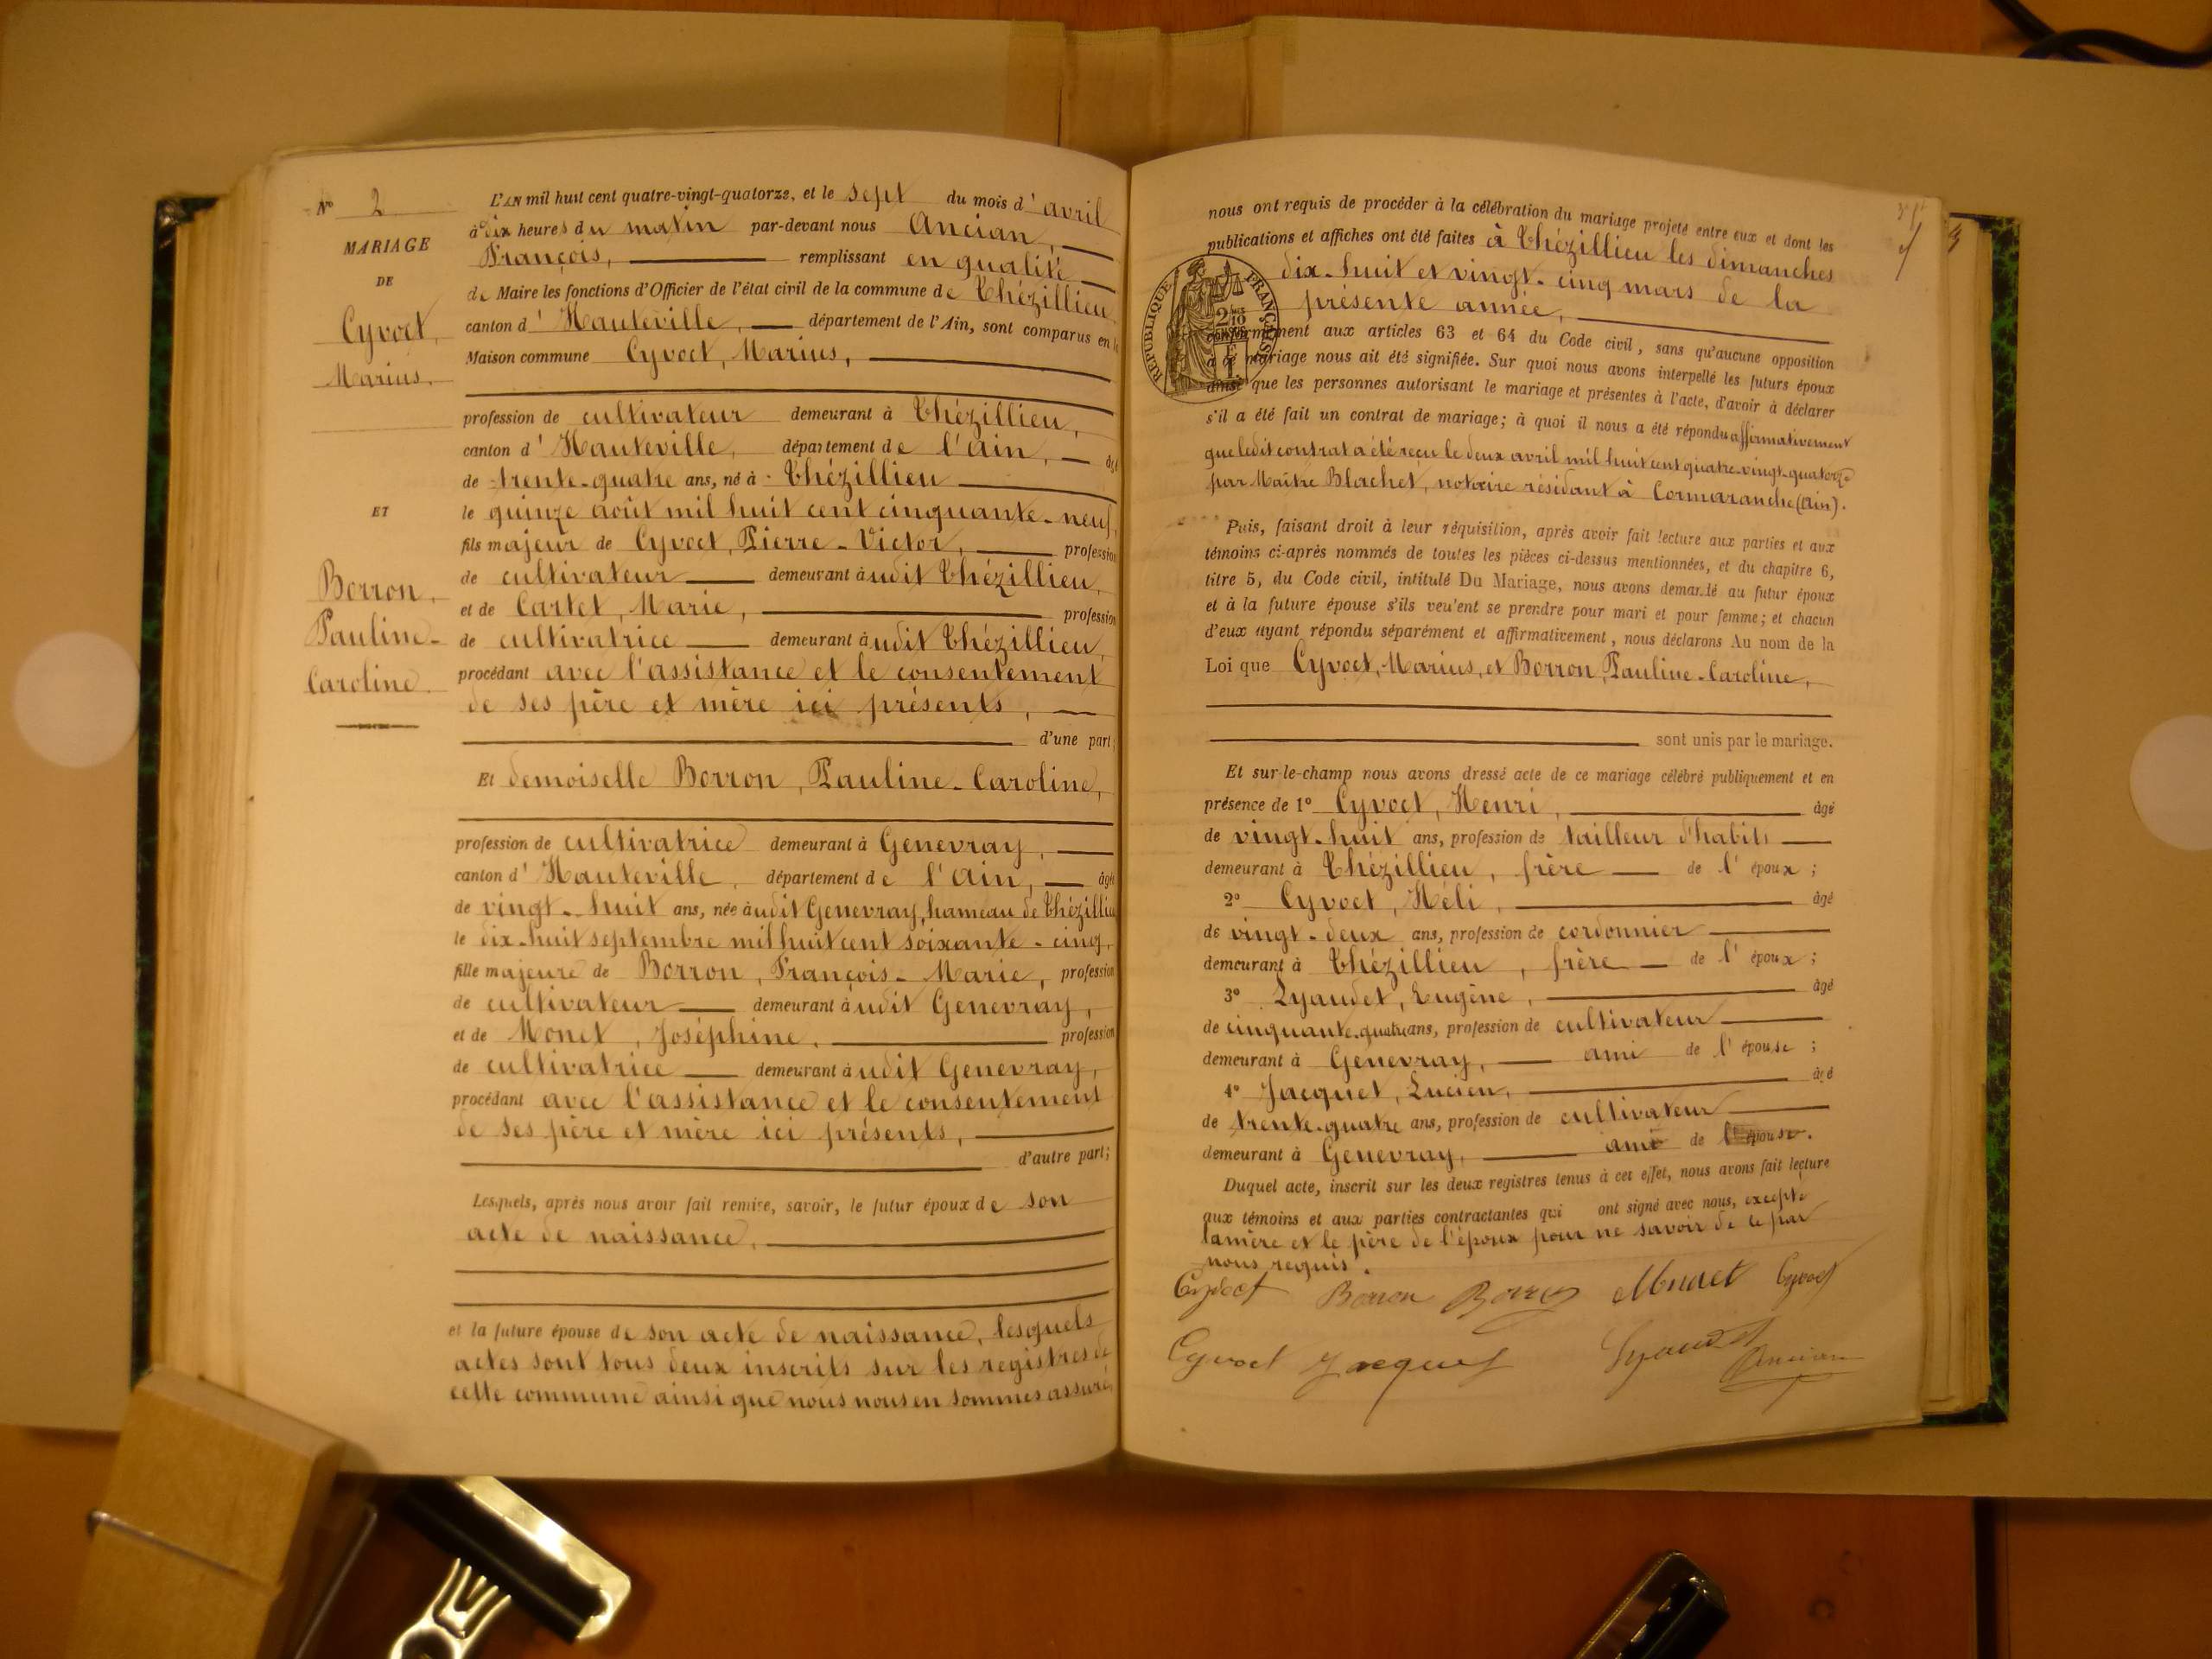 N° 2
MARIAGE
DE
Cyvoct,
Marius,
ET
Borron,
Pauline-
Caroline.
L'AN mil huit cent quatre-vingt-quatorze, et le sept du mois d'avril
à dix heures du matin par-devant nous Ancian,
François, remplissant en qualité
de Maire les fonctions d'Officier de l'état civil de la commune de Thézillieu
canton d'Hauteville, département de l'Ain, sont comparus en la
Maison commune Cyvoct, Marius,
profession de cultivateur demeurant à Thézillieu,
canton d'Hauteville, département de l'Ain, âgé
de trente-quatre ans, né à Thézillieu
le quinze août mil huit cent cinquante-neuf,
fils majeur de Cyvoct, Pierre-Victor, profession
de cultivateur demeurant à udit Thézillieu,
et de Cartet, Marie, profession
de cultivatrice demeurant à udit Thézillieu,
procédant avec l'assistance et le consentement
de ses père et mère ici présents,
d'une part;
Et demoiselle Borron, Pauline-Caroline,
profession de cultivatrice demeurant à Genevray,
canton d'Hauteville, département de l'Ain, âgée
de vingt-huit ans, née à udit Genevray, hameau de Thézillieu
le dix-huit septembre mil huit cent soixante-cinq,
fille majeure de Borron, François-Marie, profession
de cultivateur demeurant à udit Genevray,
et de Monet, Joséphine, profession
de cultivatrice demeurant à udit Genevray,
procédant avec l'assistance et le consentement
de ses père et mère ici présents,
d'autre part;
Lesquels, après nous avoir fait remise, savoir, le futur époux de son
acte de naissance,
et la future épouse de son acte de naissance, lesquels
actes sont tous deux inscrits sur les registres de
cette commune ainsi que nous nous en sommes assuré,
nous ont requis de procéder à la célébration du mariage projeté entre eux et dont les
publications et affiches ont été faites à Thézillieu les dimanches
dix-huit et vingt-cinq mars de la
présente année,
RÉPUBLIQUE FRANÇAISE
conformément aux articles 63 et 64 du Code civil, sans qu'aucune opposition
à ce mariage nous ait été signifiée. Sur quoi nous avons interpellé les futurs époux
ainsi que les personnes autorisant le mariage et présentes à l'acte, d'avoir à déclarer
s'il a été fait un contrat de mariage; à quoi il nous a été répondu affirmativement
que ledit contrat a été reçu le deux avril mil huit cent quatre-vingt-quatorze
par Maître Blachet, notaire résidant à Cormaranche (Ain).
Puis, faisant droit à leur réquisition, après avoir fait lecture aux parties et aux
témoins ci-après nommés de toutes les pièces ci-dessus mentionnées, et du chapitre 6,
titre 5, du Code civil, intitulé Du Mariage, nous avons demandé au futur époux
et à la future épouse s'ils veulent se prendre pour mari et pour femme; et chacun
d'eux ayant répondu séparément et affirmativement, nous déclarons Au nom de la
Loi que Cyvoct, Marius, et Borron, Pauline-Caroline,
sont unis par le mariage.
Et sur-le-champ nous avons dressé acte de ce mariage célébré publiquement et en
présence de 1° Cyvoct, Henri, âgé
de vingt-huit ans, profession de tailleur d'habits
demeurant à Thézillieu, frère de l'époux;
2° Cyvoct, Héli, âgé
de vingt-deux ans, profession de cordonnier
demeurant à Thézillieu, frère de l'époux;
3° Lyaudet, Eugène, âgé
de cinquante-quatre ans, profession de cultivateur
demeurant à Genevray, ami de l'épouse;
4° Jacquet, Lucien, âgé
de trente-quatre ans, profession de cultivateur
demeurant à Genevray, ami de l'épouse.
Duquel acte, inscrit sur les deux registres tenus à cet effet, nous avons fait lecture
aux témoins et aux parties contractantes qui ont signé avec nous, excepté
la mère et le père de l'époux pour ne savoir de ce par
nous requis.
Cyvoct Borron Borron Monet Cyvoct
Cyvoct Jacquet Lyaudet
Ancian